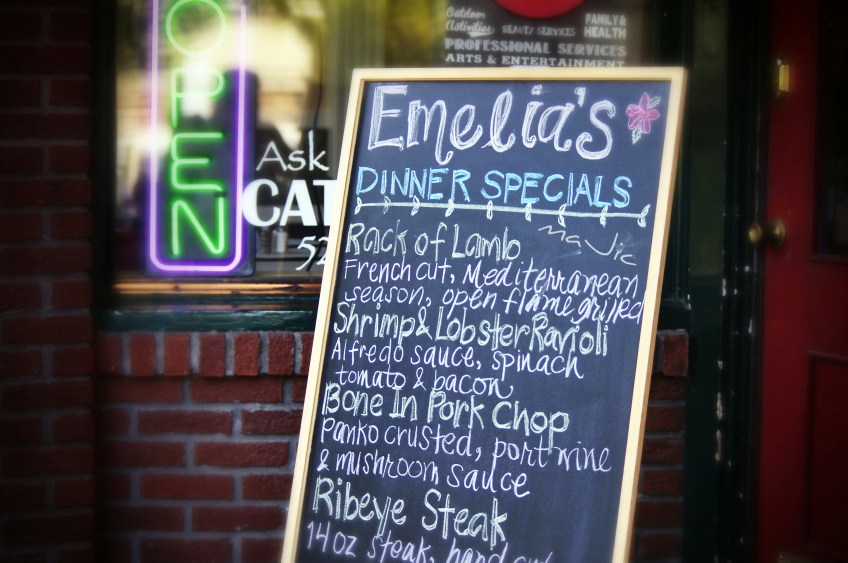 OPEN
Outdoor
Activities
BEAUTY SERVICES
FAMILY &
HEALTH
PROFESSIONAL SERVICES
ARTS & ENTERTAINMENT
Ask
CAT
52
Emelia's
DINNER SPECIALS
Rack of Lamb
French cut, Mediterranean
season, open flame grilled
Shrimp & Lobster Ravioli
Alfredo sauce, spinach
tomato & bacon
Bone In Pork Chop
Panko crusted, port wine
& mushroom sauce
Ribeye Steak
14 oz steak, hand